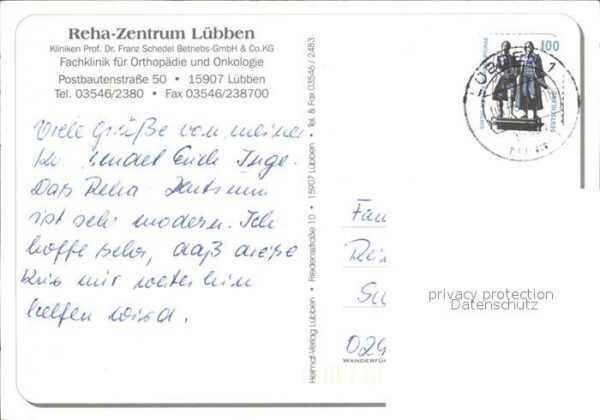 Reha-Zentrum Lübben
Kliniken Prof. Dr. Franz Schedel Betriebs-GmbH & Co.KG
Fachklinik für Orthopädie und Onkologie
Postbautenstraße 50 • 15907 Lübben
Tel. 03546/2380 • Fax 03546/238700
Viele Grüße von meiner
Kur sendet Euch Inge.
Das Reha-Zentrum
ist sehr modern. Ich
hoffe sehr, daß diese
Kur mir weterhin
helfen wird.
Heimat-Verlag Lübben • Friedensstraße 10 • 15907 Lübben • Tel. & Fax 03546 / 2483
100
DEUTSCHLAND
LÜBBEN 1
Fam
024
WANDERFÜ
privacy protection
Datenschutz